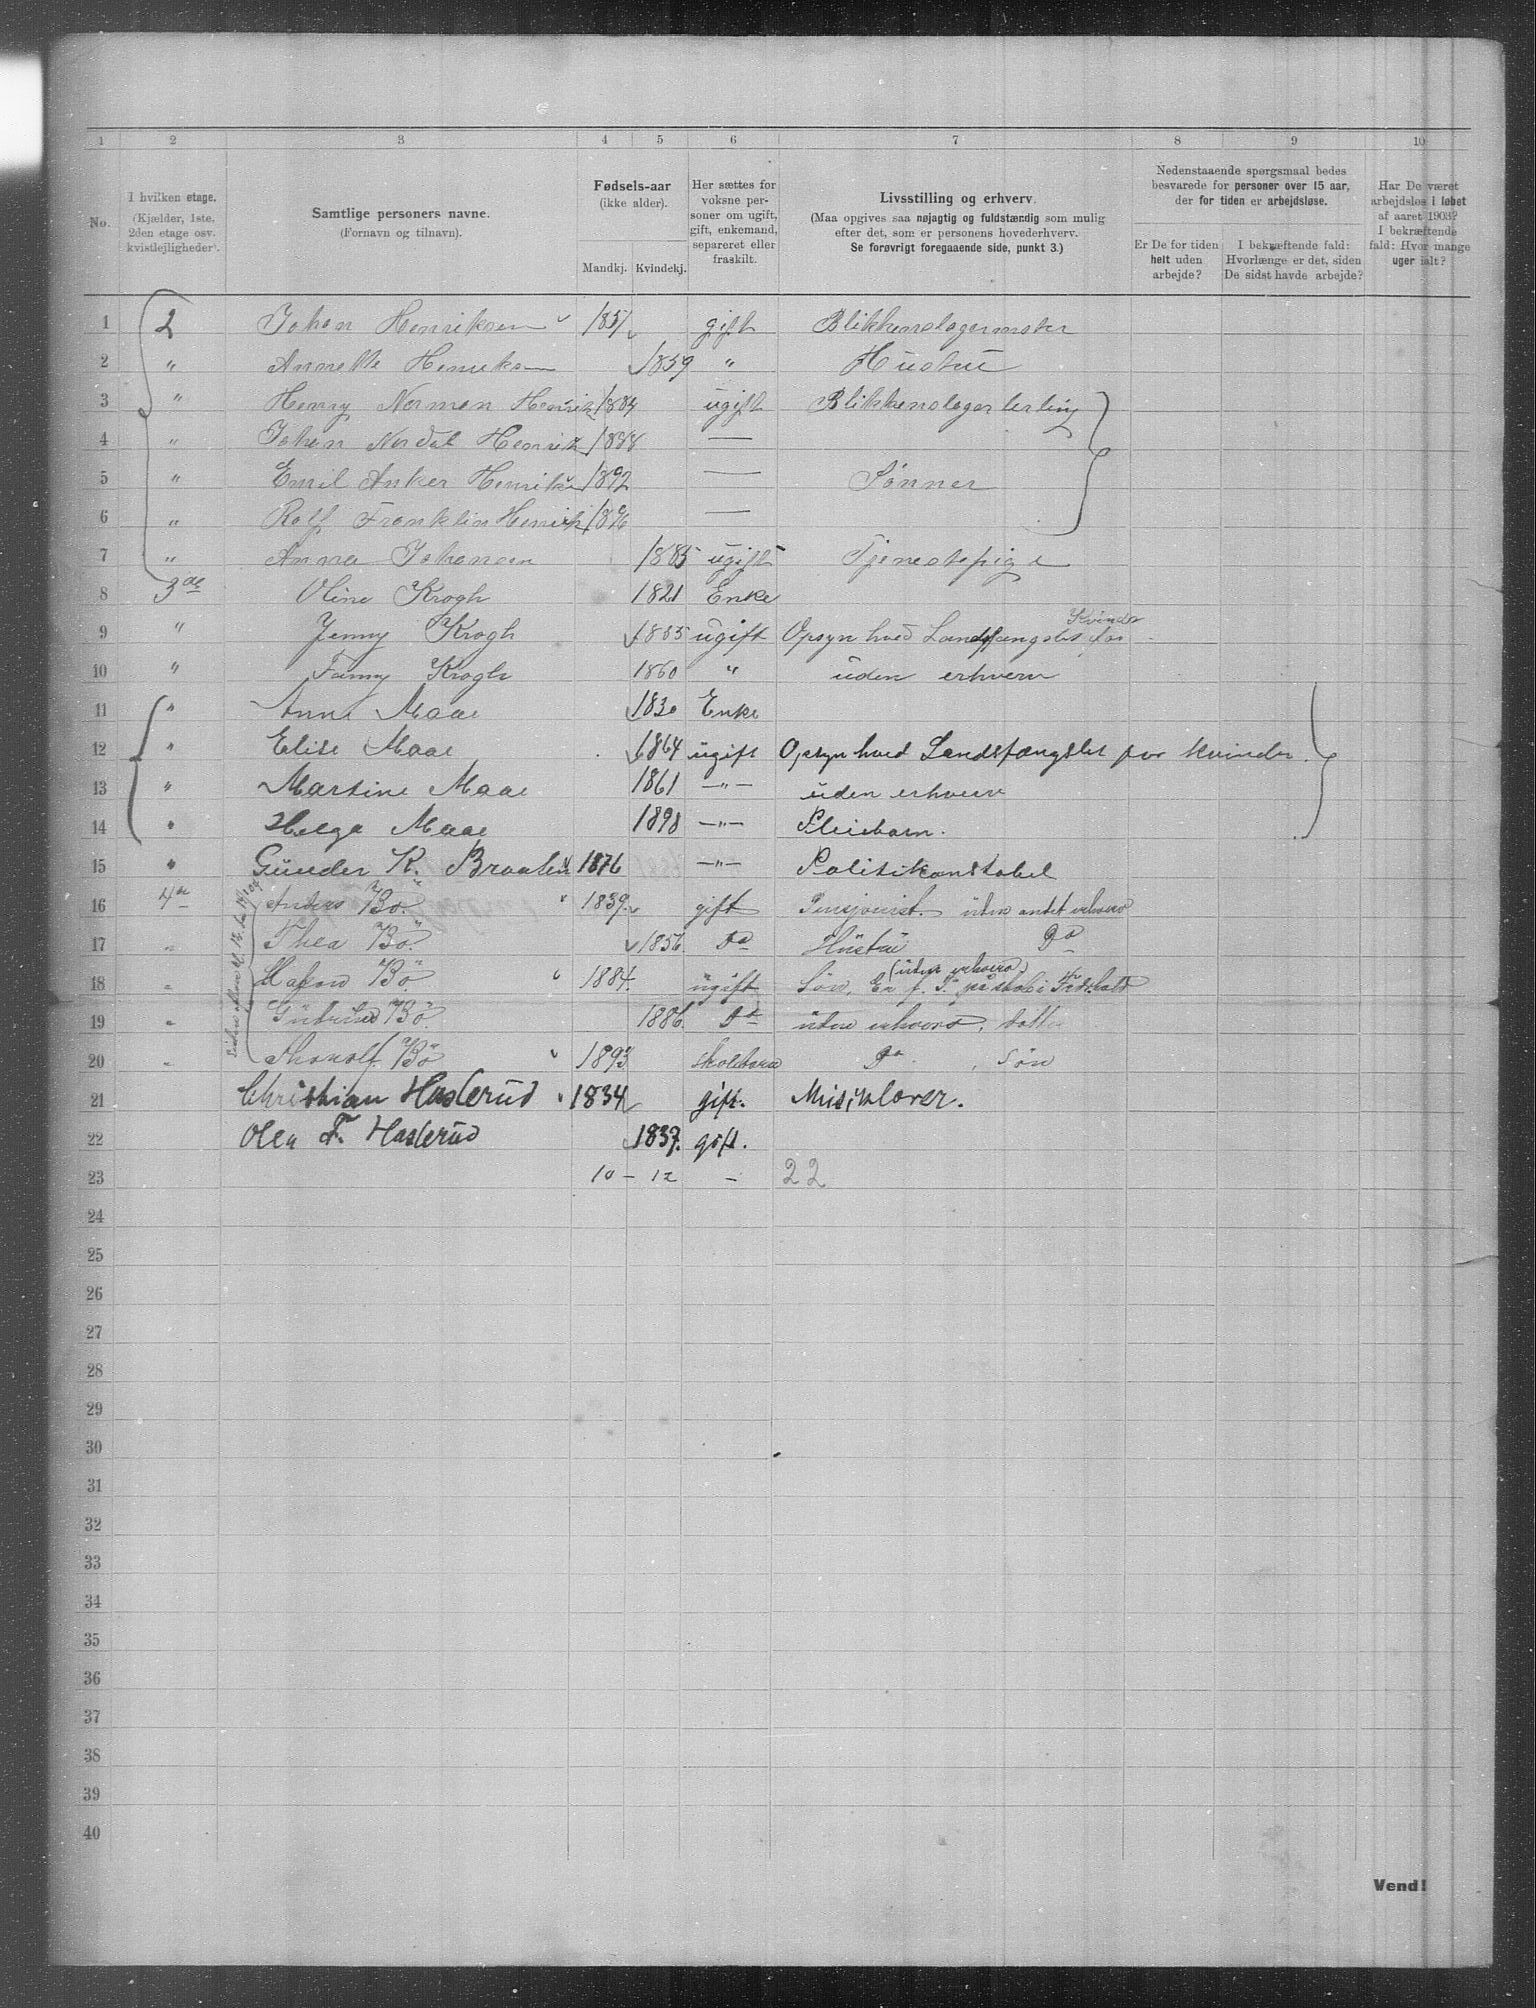 1 2 3 4 5 6 7 8 9 10
No.
I hvilken etage.
(Kjælder, 1ste,
2den etage osv.
kvistlejligheder).
Samtlige personers navne.
(Fornavn og tilnavn).
Fødsels-aar
(ikke alder).
Mandkj. Kvindekj.
Her sættes for
voksne per-
soner om ugift,
gift, enkemand,
separeret eller
fraskilt.
Livsstilling og erhverv.
(Maa opgives saa nøjagtig og fuldstændig som mulig
efter det, som er personens hovederhverv.
Se forøvrigt foregaaende side, punkt 3.)
Nedenstaaende spørgsmaal bedes
besvarede for personer over 15 aar,
der for tiden er arbejdsløse.
Er De for tiden
helt uden
arbejde?
I bekræftende fald:
Hvorlænge er det, siden
De sidst havde arbejde?
Har De været
arbejdsløs i løbet
af aaret 1903?
I bekræftende
fald: Hvor mange
uger ialt?
1 2 Johan Henriksen 1851 gift Blikkenslagermester
2 " Annette Henriksen 1859 " Hustru
3 " Henry Norman Henrik 1884 ugift Blikkenslagerlerling
4 " Johan Nordal Henrik 1888 —
5 " Emil Anker Henriks 1892 — Sønner
6 " Rolf Franklin Henrik 1896 —
7 " Anna Johansen 1885 ugift Tjenestepige
8 3de Oline Krogh 1821 Enke
9 " Jenny Krogh 1855 ugift Opsyn hved Landsfængslet for Kvinder
10 " Fanny Krogh 1860 " uden erhverv
11 " Anne Maae 1830 Enke
12 " Elise Maae 1864 ugift Opsyn hved Landsfængslet for kvinder.
13 " Martine Maae 1861 —"— uden erhverv
14 " Helga Maae 1898 —"— Pleiebarn.
15 " Gunder K. Braaten 1876 —"— Politikonstabel
16 4de Anders Bö. 1839. gift Pensjonist. uden andet erhverv
17 " Thea Bö. 1856 Do Hustru Do
18 " Hakon Bö 1884. ugift Søn. (uden erhverv)
19 " Bö. 1886 Do uden erhverv, datter
20 " Thoralf Bö 1893 skolebarn Do. , Søn
21 Christhian Haslerud 1834 gift. Musiklærer.
22 Olea F. Haslerud 1837. gift.
23 10 – 12 – 22
24
25
26
27
28
29
30
31
32
33
34
35
36
37
38
39
40
Vend!